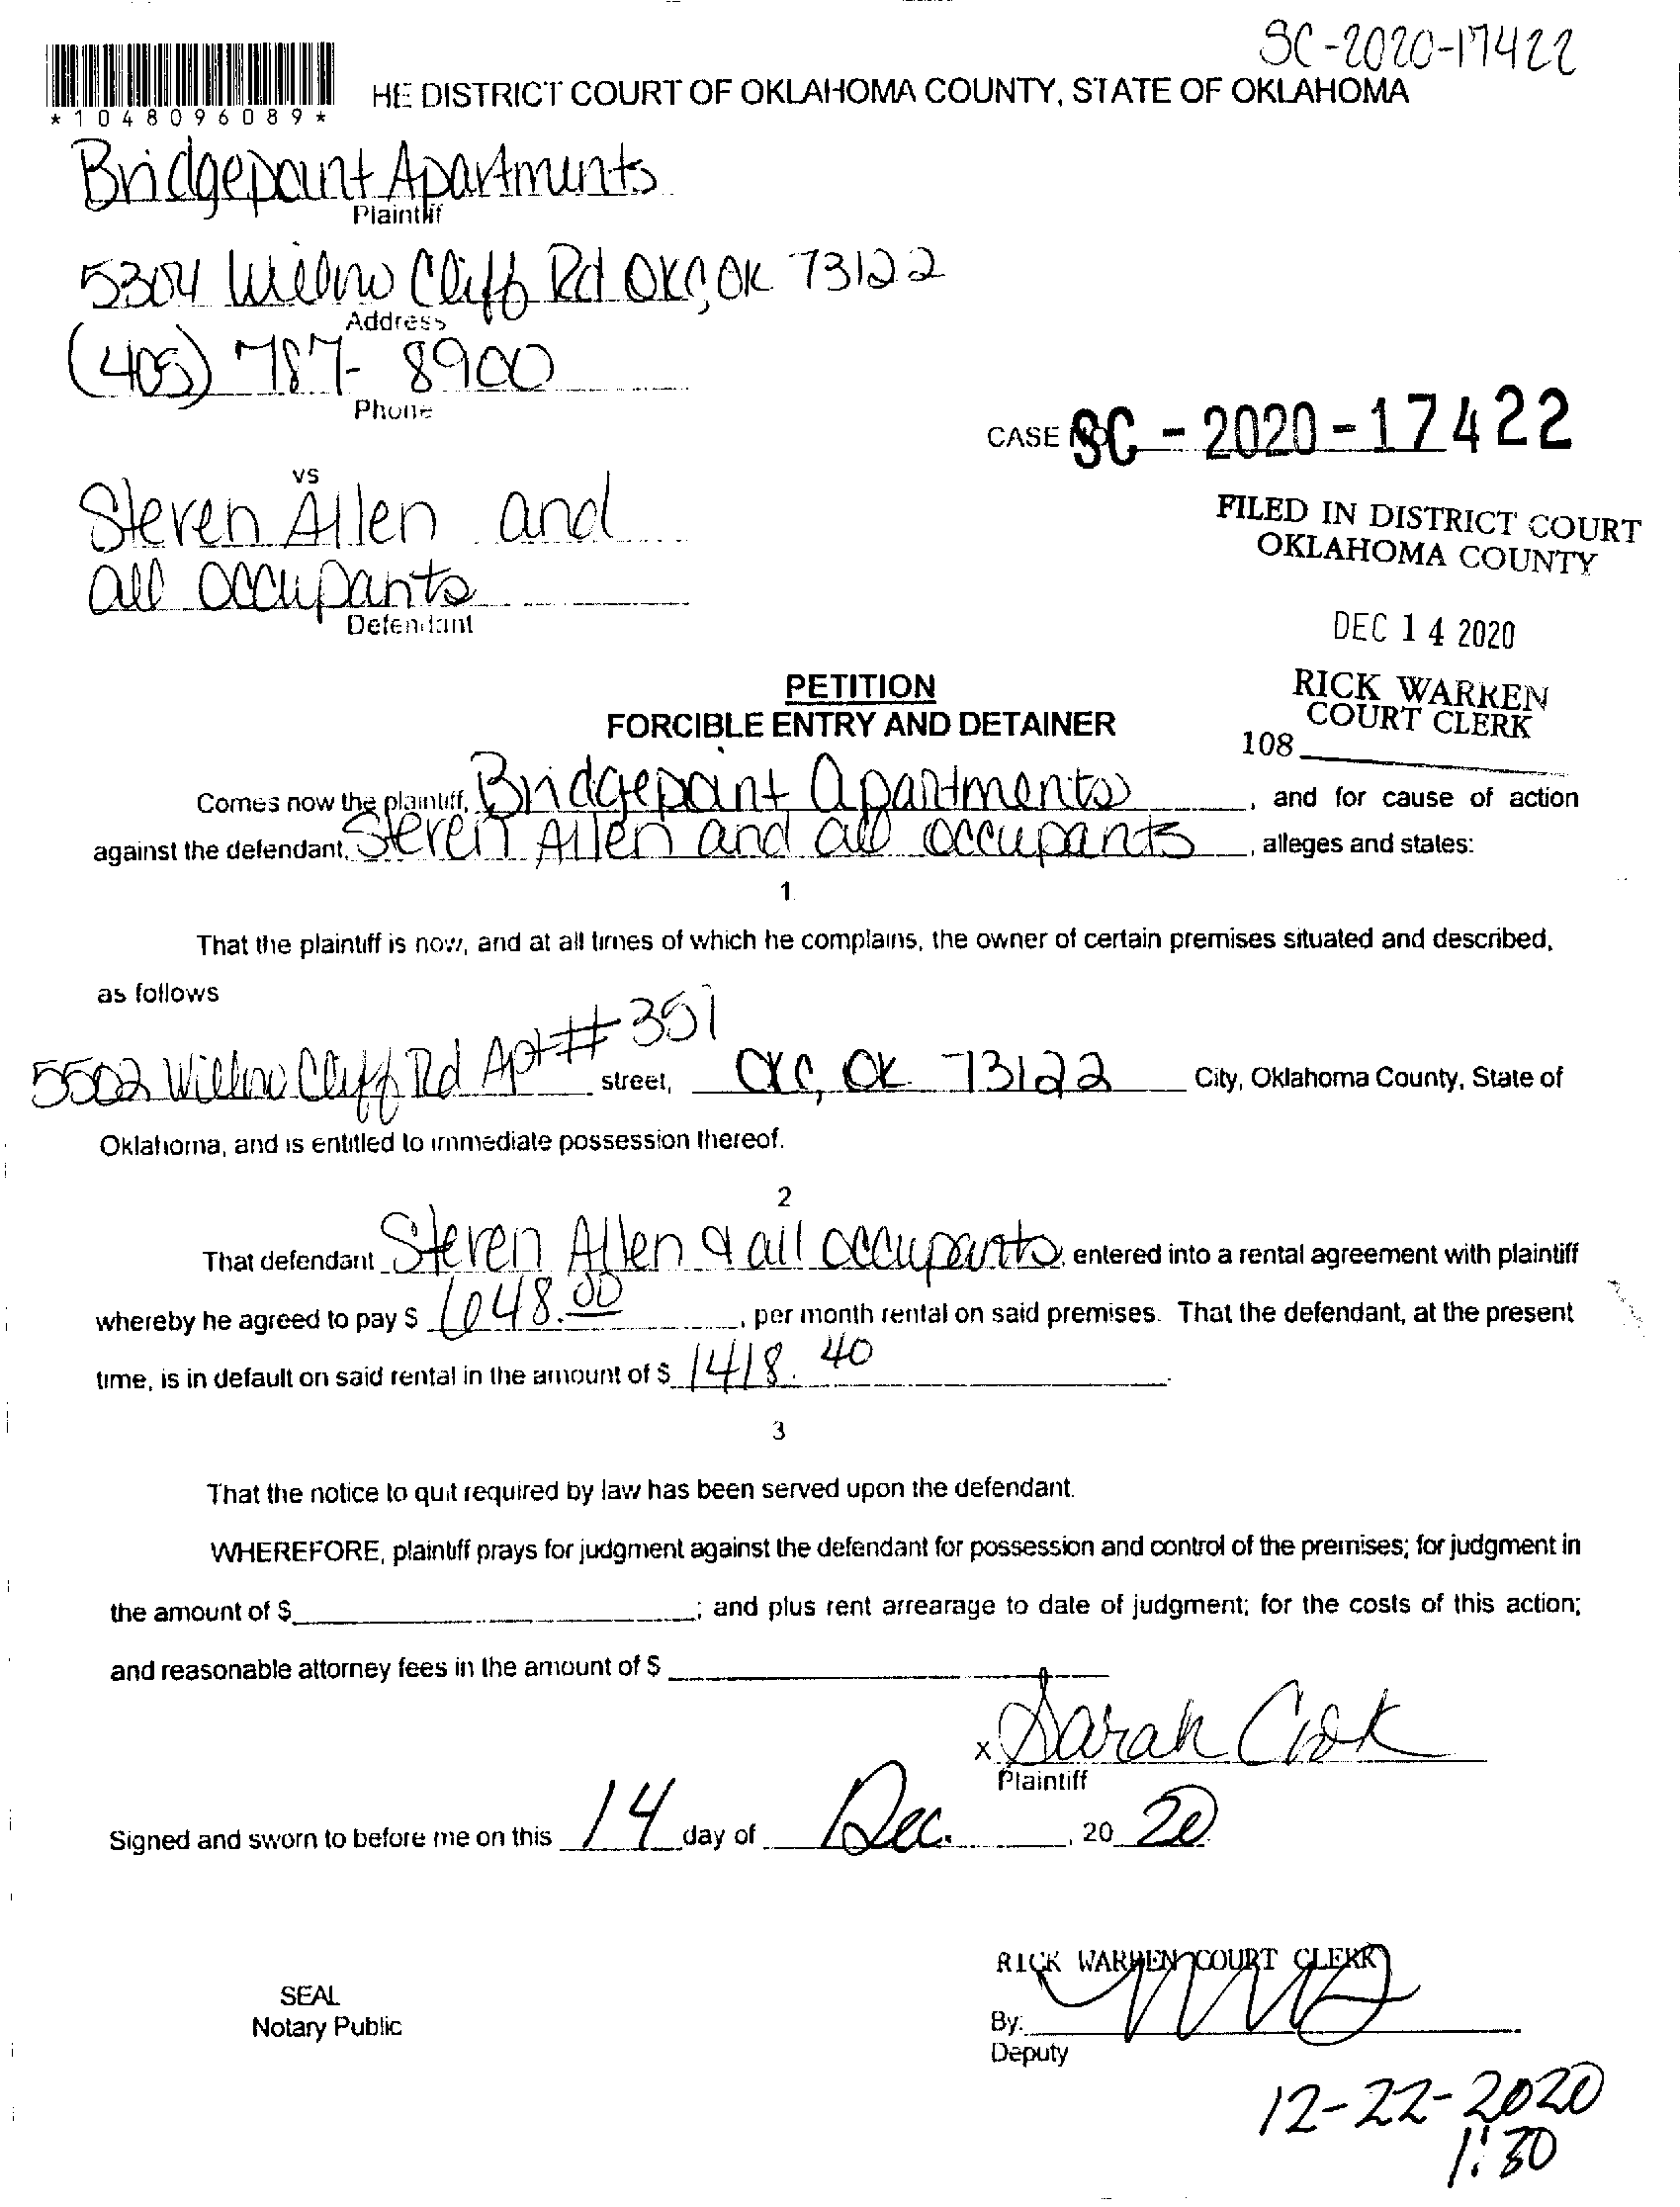 SC-2020-17422
HE DISTRICT COURT OF OKLAHOMA COUNTY, STATE OF OKLAHOMA
*1048096089*
Bridgepoint Apartments
Plaintiff
5304 Willow Cliff Rd OKC, OK 73122
Address
(405) 787-8900
Phone
CASE NO SC-2020-17422
vs
Steven Allen and
all occupants
Defendant
FILED IN DISTRICT COURT
OKLAHOMA COUNTY
DEC 14 2020
RICK WARREN
COURT CLERK
108
PETITION
FORCIBLE ENTRY AND DETAINER
Comes now the plaintiff, Bridgepoint Apartments, and for cause of action
against the defendant, Steven Allen and all occupants, alleges and states:
1
That the plaintiff is now, and at all times of which he complains, the owner of certain premises situated and described,
as follows
5502 Willow Cliff Rd Apt # 351 street, OKC, OK 73122 City, Oklahoma County, State of
Oklahoma, and is entitled to immediate possession thereof.
2
That defendant Steven Allen & all occupants, entered into a rental agreement with plaintiff
whereby he agreed to pay $ 648.00, per month rental on said premises. That the defendant, at the present
time, is in default on said rental in the amount of $ 1418.40.
3
That the notice to quit required by law has been served upon the defendant.
WHEREFORE, plaintiff prays for judgment against the defendant for possession and control of the premises; for judgment in
the amount of $ ; and plus rent arrearage to date of judgment; for the costs of this action;
and reasonable attorney fees in the amount of $
x Sarah Cook
Plaintiff
Signed and sworn to before me on this 14 day of Dec., 20 20
SEAL
Notary Public
RICK WARREN COURT CLERK
By:
Deputy
12-22-2020
1:30